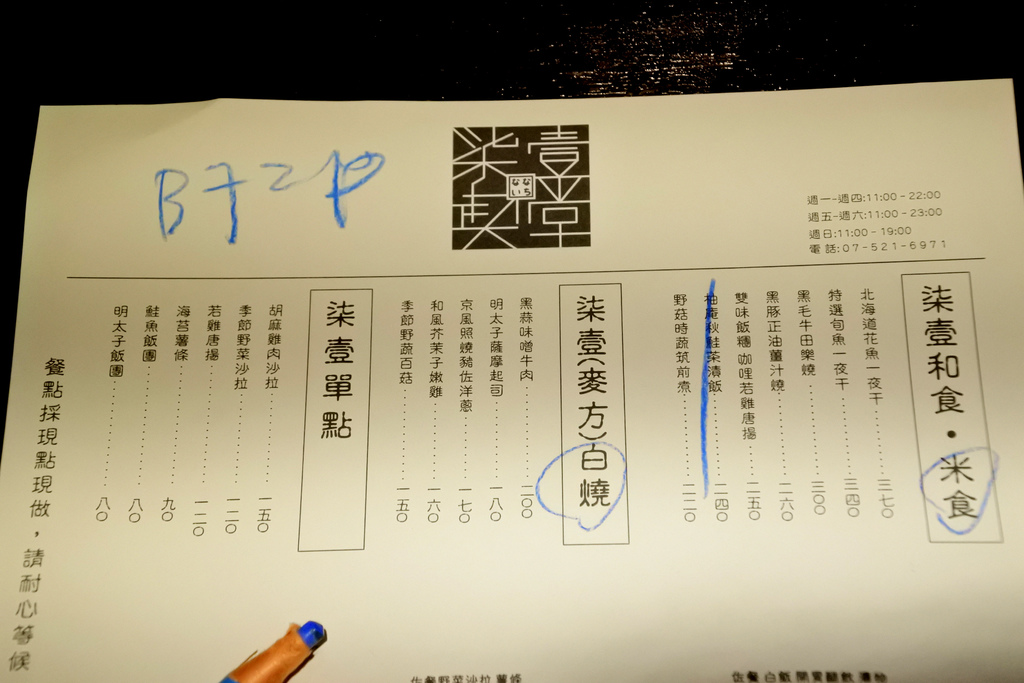 柒壹喫堂
なな
いち
週一-週四:11:00-22:00
週五-週六:11:00-23:00
週日:11:00-19:00
電話:07-521-6971
柒壹和食・米食
北海道花魚一夜干 三七〇
特選旬魚一夜干 三四〇
黑毛牛田樂燒 三〇〇
黑豚正油薑汁燒 二六〇
雙味飯糰 咖哩若雞唐揚 二五〇
柚庵秋鮭茶漬飯 二四〇
野菇時蔬筑前煮 二二〇
柒壹(麥方)白燒
黑蒜味噌牛肉 二〇〇
明太子薩摩起司 一八〇
京風照燒豬佐洋蔥 一七〇
和風芥茉子嫩雞 一六〇
季節野蔬百菇 一五〇
柒壹單點
胡麻雞肉沙拉 一五〇
季節野菜沙拉 一二〇
若雞唐揚 一二〇
海苔薯條 九〇
鮭魚飯團 八〇
明太子飯團 八〇
餐點採現點現做，請耐心等候
佐餐野菜沙拉 薯條